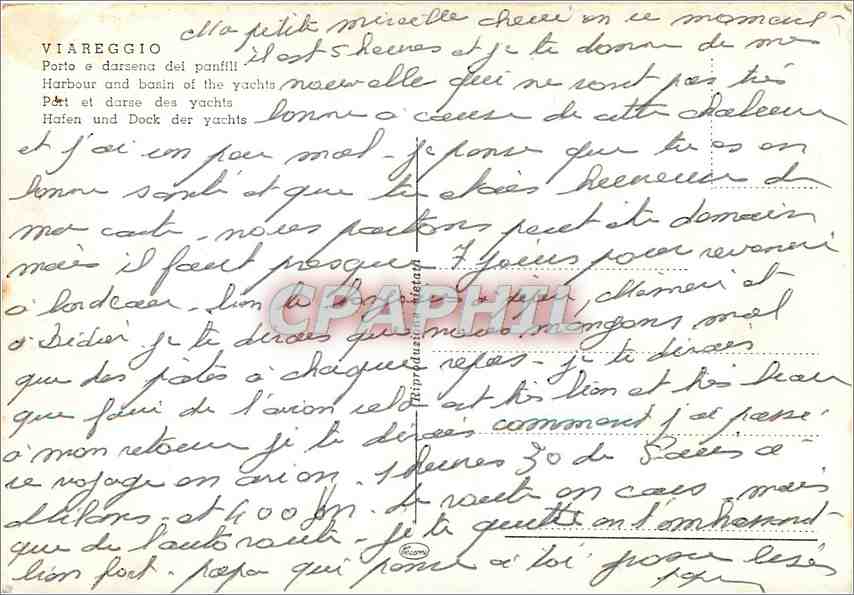 Ma petite mireille cheri en ce moment
VIAREGGIO
il est 5 heures et je te donne de mes
Porto e darsena dei panfili
Harbour and basin of the yachts
nouvelle qui ne sont pas très
Port et darse des yachts
Hafen und Dock der yachts
bonne a cause de cette chaleur
et j'ai un peu mal - je pense que tu es en
bonne santé et que tu étais heureuse de
ma carte - nous partons peut etre demain
mais il faut presque 7 jours pour revenir
a bordeau - bien le a et
a Didier je te dirais que nous mangons mal
que des pates a chaque repas - je te dirais
que faire de l'avion cela est très bien et très beau
a mon retour je te dirais comment j'ai passé
ce voyage en avion - 1 heures 30 de a
Milans - et 400 km de route en cars - mais
que de l'autoroute - je te quitte en t'embrassant
bien fort - papa qui pense a toi
papa
Riproduzione vietata
CPAPHIL